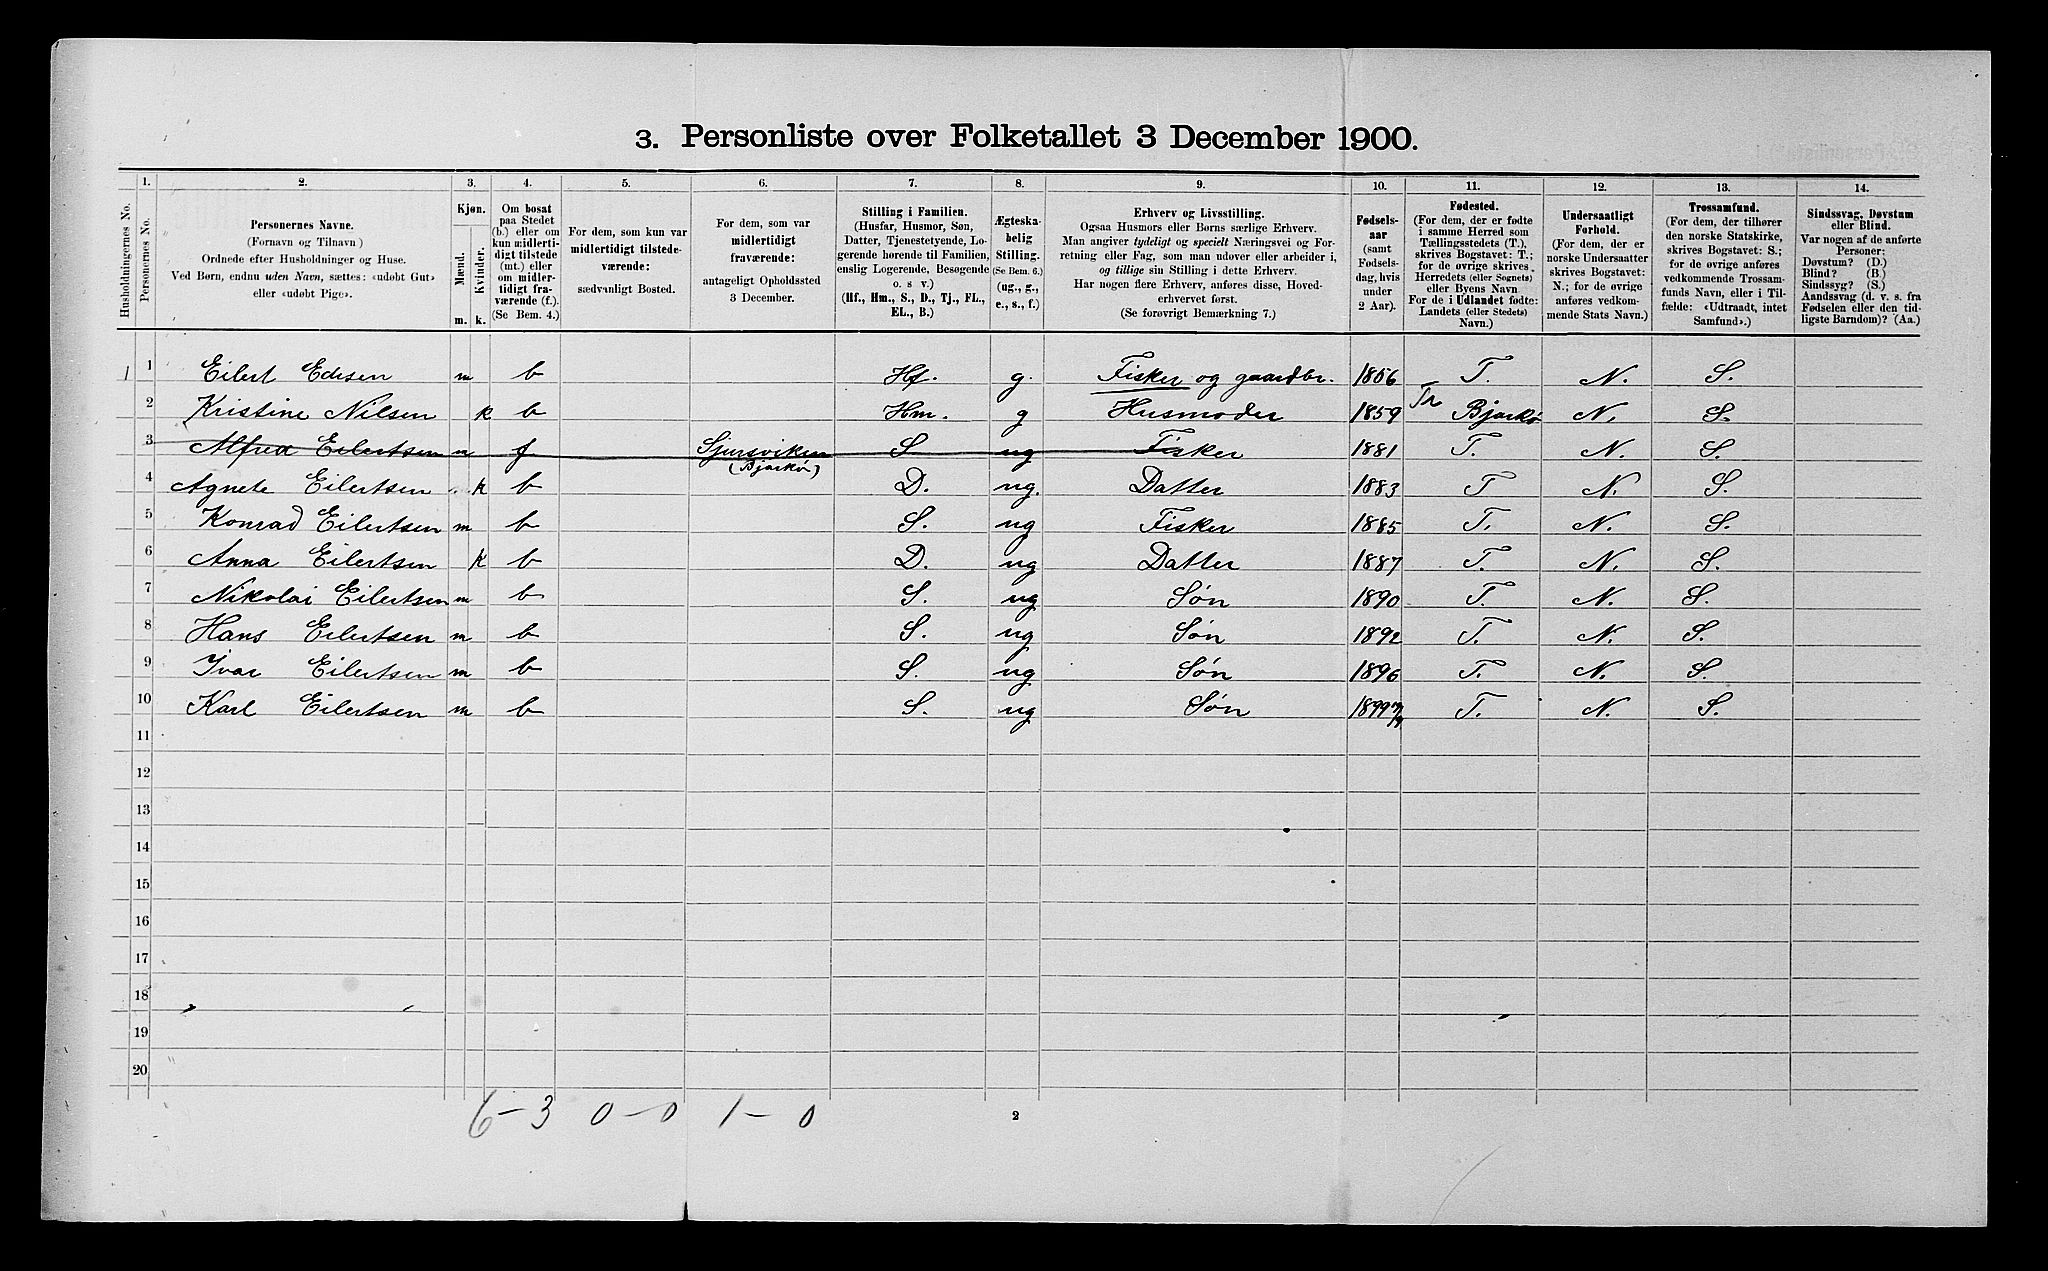 3. Personliste over Folketallet 3 December 1900.
Husholdningernes No.
1.
Personernes No.
2.
Personernes Navne.
(Fornavn og Tilnavn)
Ordnede efter Husholdninger og Huse.
Ved Børn, endnu uden Navn, sættes: «udøbt Gut»
eller «udøbt Pige».
3.
Kjøn.
Mænd.
Kvinder.
m. k.
4.
Om bosat
paa Stedet
(b.) eller om
kun midlerti-
digt tilstede
(mt.) eller
om midler-
tidigt fra-
værende (f.).
(Se Bem. 4.)
5.
For dem, som kun var
midlertidigt tilstede-
værende:
sædvanligt Bosted.
6.
For dem, som var
midlertidigt
fraværende:
antageligt Opholdssted
3 December.
7.
Stilling i Familien.
(Husfar, Husmor, Søn,
Datter, Tjenestetyende, Lo-
gerende hørende til Familien,
enslig Logerende, Besøgende
o. s v.)
(Hf., Hm., S., D., Tj., FL.,
EL., B.)
8.
Ægteska-
belig
Stilling.
(Se Bem. 6.)
(ug., g.,
e., s., f.)
9.
Erhverv og Livsstilling.
Ogsaa Husmors eller Børns særlige Erhverv.
Man angiver tydeligt og specielt Næringsvei og For-
retning eller Fag, som man udøver eller arbeider i,
og tillige sin Stilling i dette Erhverv.
Har nogen flere Erhverv, anføres disse, Hoved-
erhvervet først.
(Se forøvrigt Bemærkning 7.)
10.
Fødsels-
aar
(samt
Fødsels-
dag, hvis
under
2 Aar).
11.
Fødested.
(For dem, der er fødte
i samme Herred som
Tællingsstedets (T.),
skrives Bogstavet: T.;
for de øvrige skrives
Herredets (eller Sognets)
eller Byens Navn
For de i Udlandet fødte:
Landets (eller Stedets)
Navn.)
12.
Undersaatligt
Forhold.
(For dem, der er
norske Undersaatter
skrives Bogstavet:
N.; for de øvrige
anføres vedkom-
mende Stats Navn.)
13.
Trossamfund.
(For dem, der tilhører
den norske Statskirke,
skrives Bogstavet: S.;
for de øvrige anføres
vedkommende Trossam-
funds Navn, eller i Til-
fælde: «Udtraadt, intet
Samfund».)
14.
Sindssvag, Døvstum
eller Blind.
Var nogen af de anførte
Personer:
Døvstum? (D.)
Blind? (B.)
Sindssyg? (S.)
Aandssvag (d. v. s. fra
Fødselen eller den tid-
ligste Barndom)? (Aa.)
1 1 Eilert Edisen m b Hf. g. Fisker og gaardbr. 1856 T. N. S.
2 Kristine Nilsen k b Hm. g Husmoder 1859 Tr Bjarkø N. S.
3 Alfred Eilertsen m f Sjursviken (Bjarkø) S ug Fisker 1881 T. N. S.
4 Agnete Eilertsen k b D. ug. Datter 1883 T N. S.
5 Konrad Eilertsen m b S. ug Fisker 1885 T. N. S.
6 Anna Eilertsen k b D. ug Datter 1887 T. N. S.
7 Nikolai Eilertsen m b S. ug Søn 1890 T. N. S.
8 Hans Eilertsen m b S. ug Søn 1892 T. N. S.
9 Ivar Eilertsen m b S. ug Søn 1896 T. N. S.
10 Karl Eilertsen m b S. ug Søn 1899 T. N. S.
11
12
13
14
15
16
17
18
19
20
6-3 0-0 1-0
2